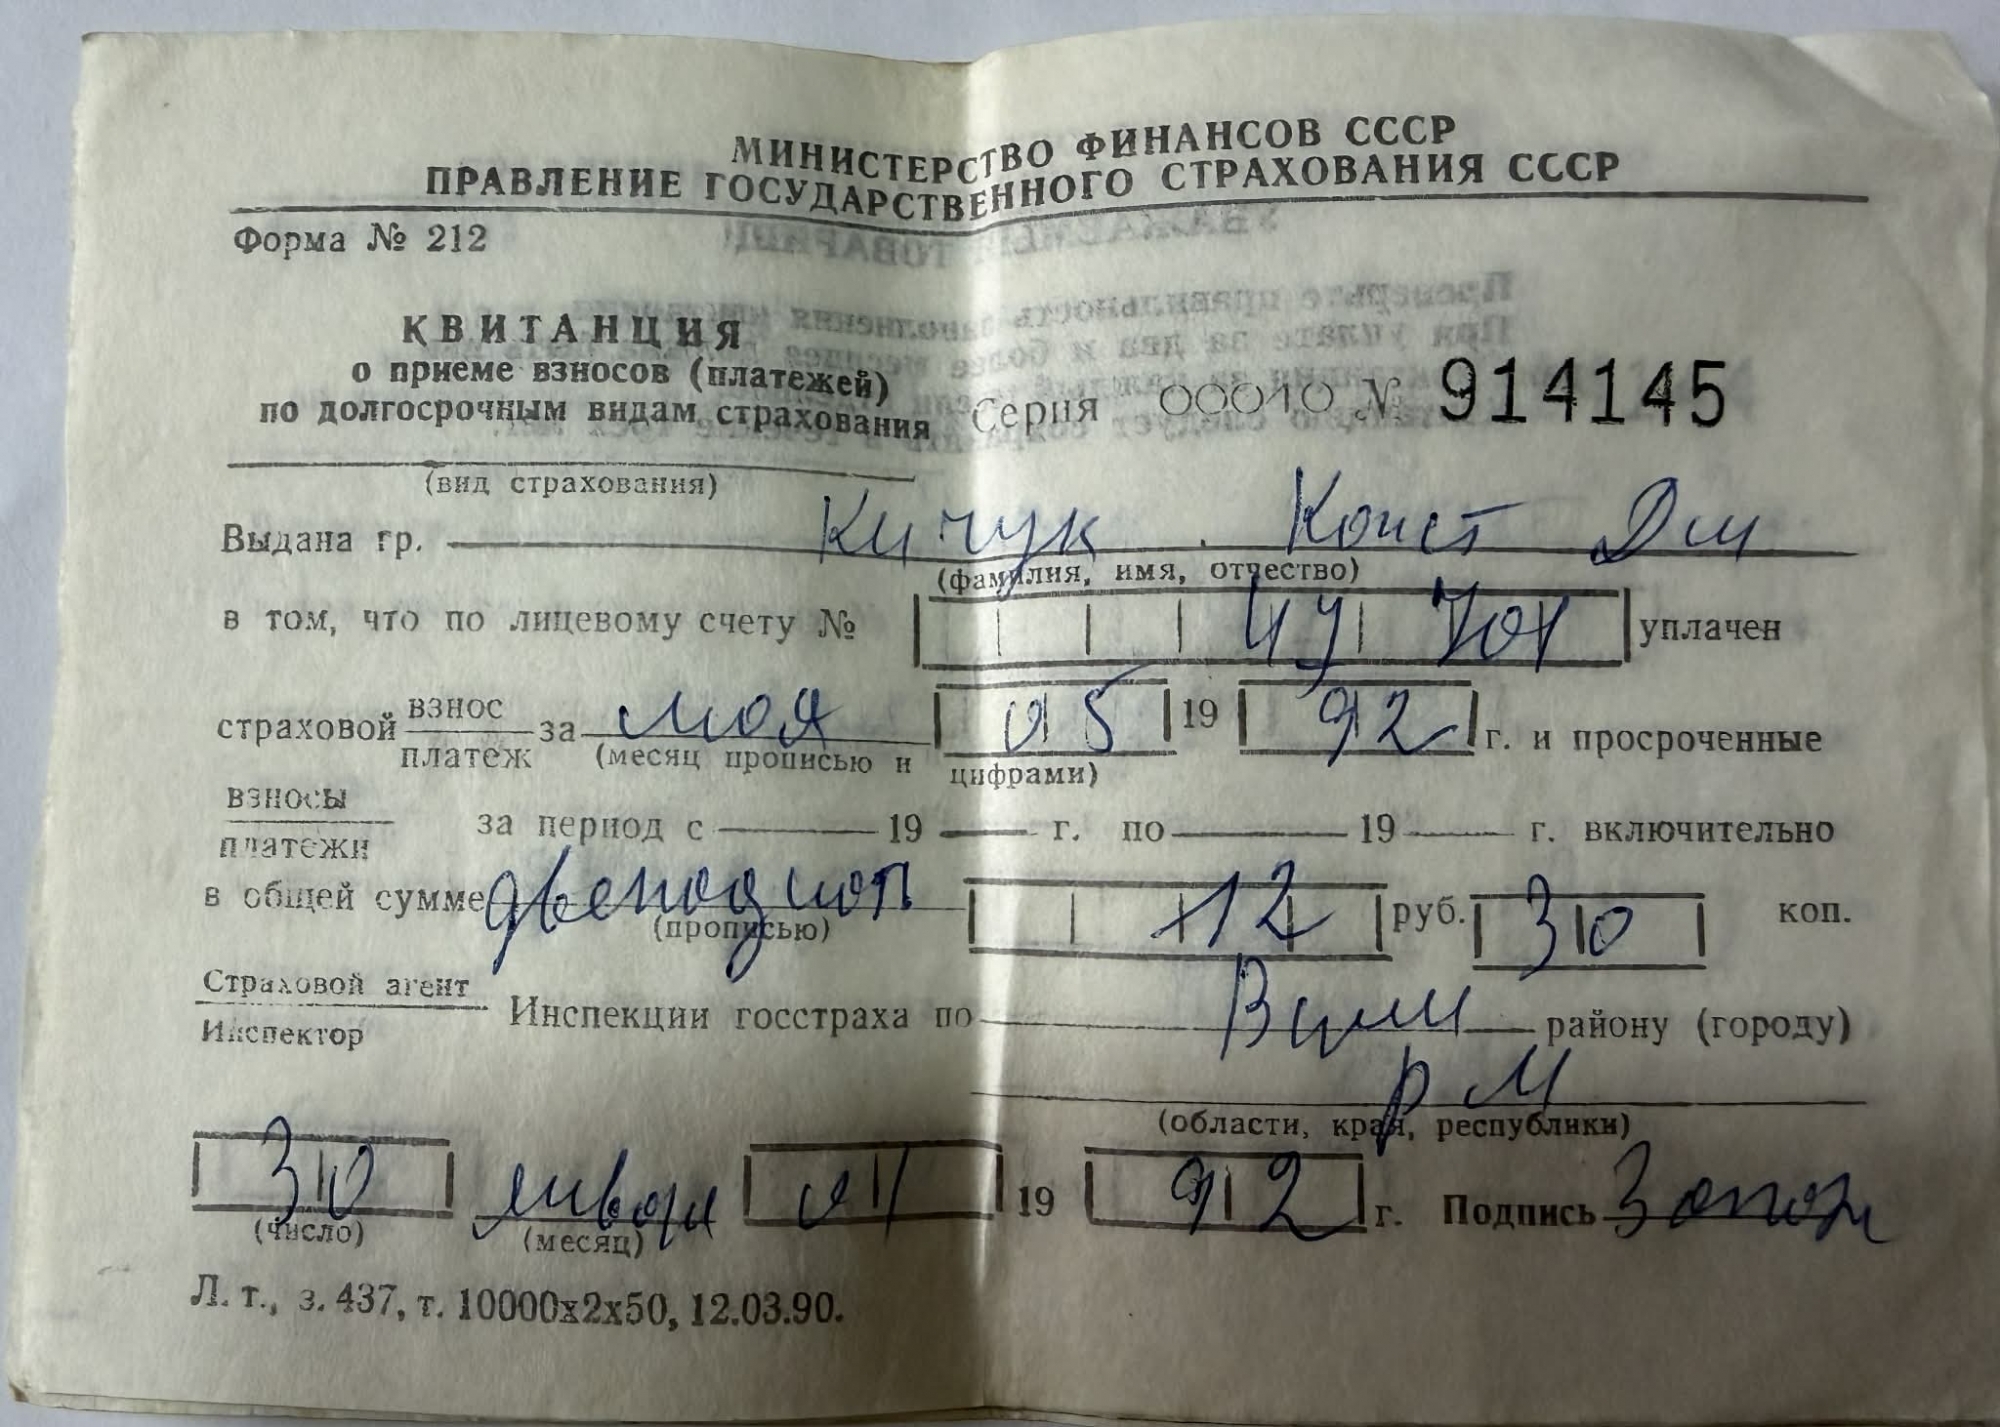 МИНИСТЕРСТВО ФИНАНСОВ СССР
ПРАВЛЕНИЕ ГОСУДАРСТВЕННОГО СТРАХОВАНИЯ СССР
Форма № 212
КВИТАНЦИЯ
о приеме взносов (платежей)
по долгосрочным видам страхования
Серия 00010 № 914145
(вид страхования)
Выдана гр. Кичук Конст Дм
(фамилия, имя, отчество)
в том, что по лицевому счету № уплачен
страховой взнос/платеж за мая 05 19 92 г. и просроченные
(месяц прописью и цифрами)
взносы/платежи за период с 19 г. по 19 г. включительно
в общей сумме двенадцат 12 руб. 30 коп.
(прописью)
Страховой агент/Инспектор Инспекции госстраха по району (городу)
РМ
(области, края, республики)
30 января 01 19 92 г. Подпись
(число) (месяц)
Л. т., з. 437, т. 10000х2х50, 12.03.90.